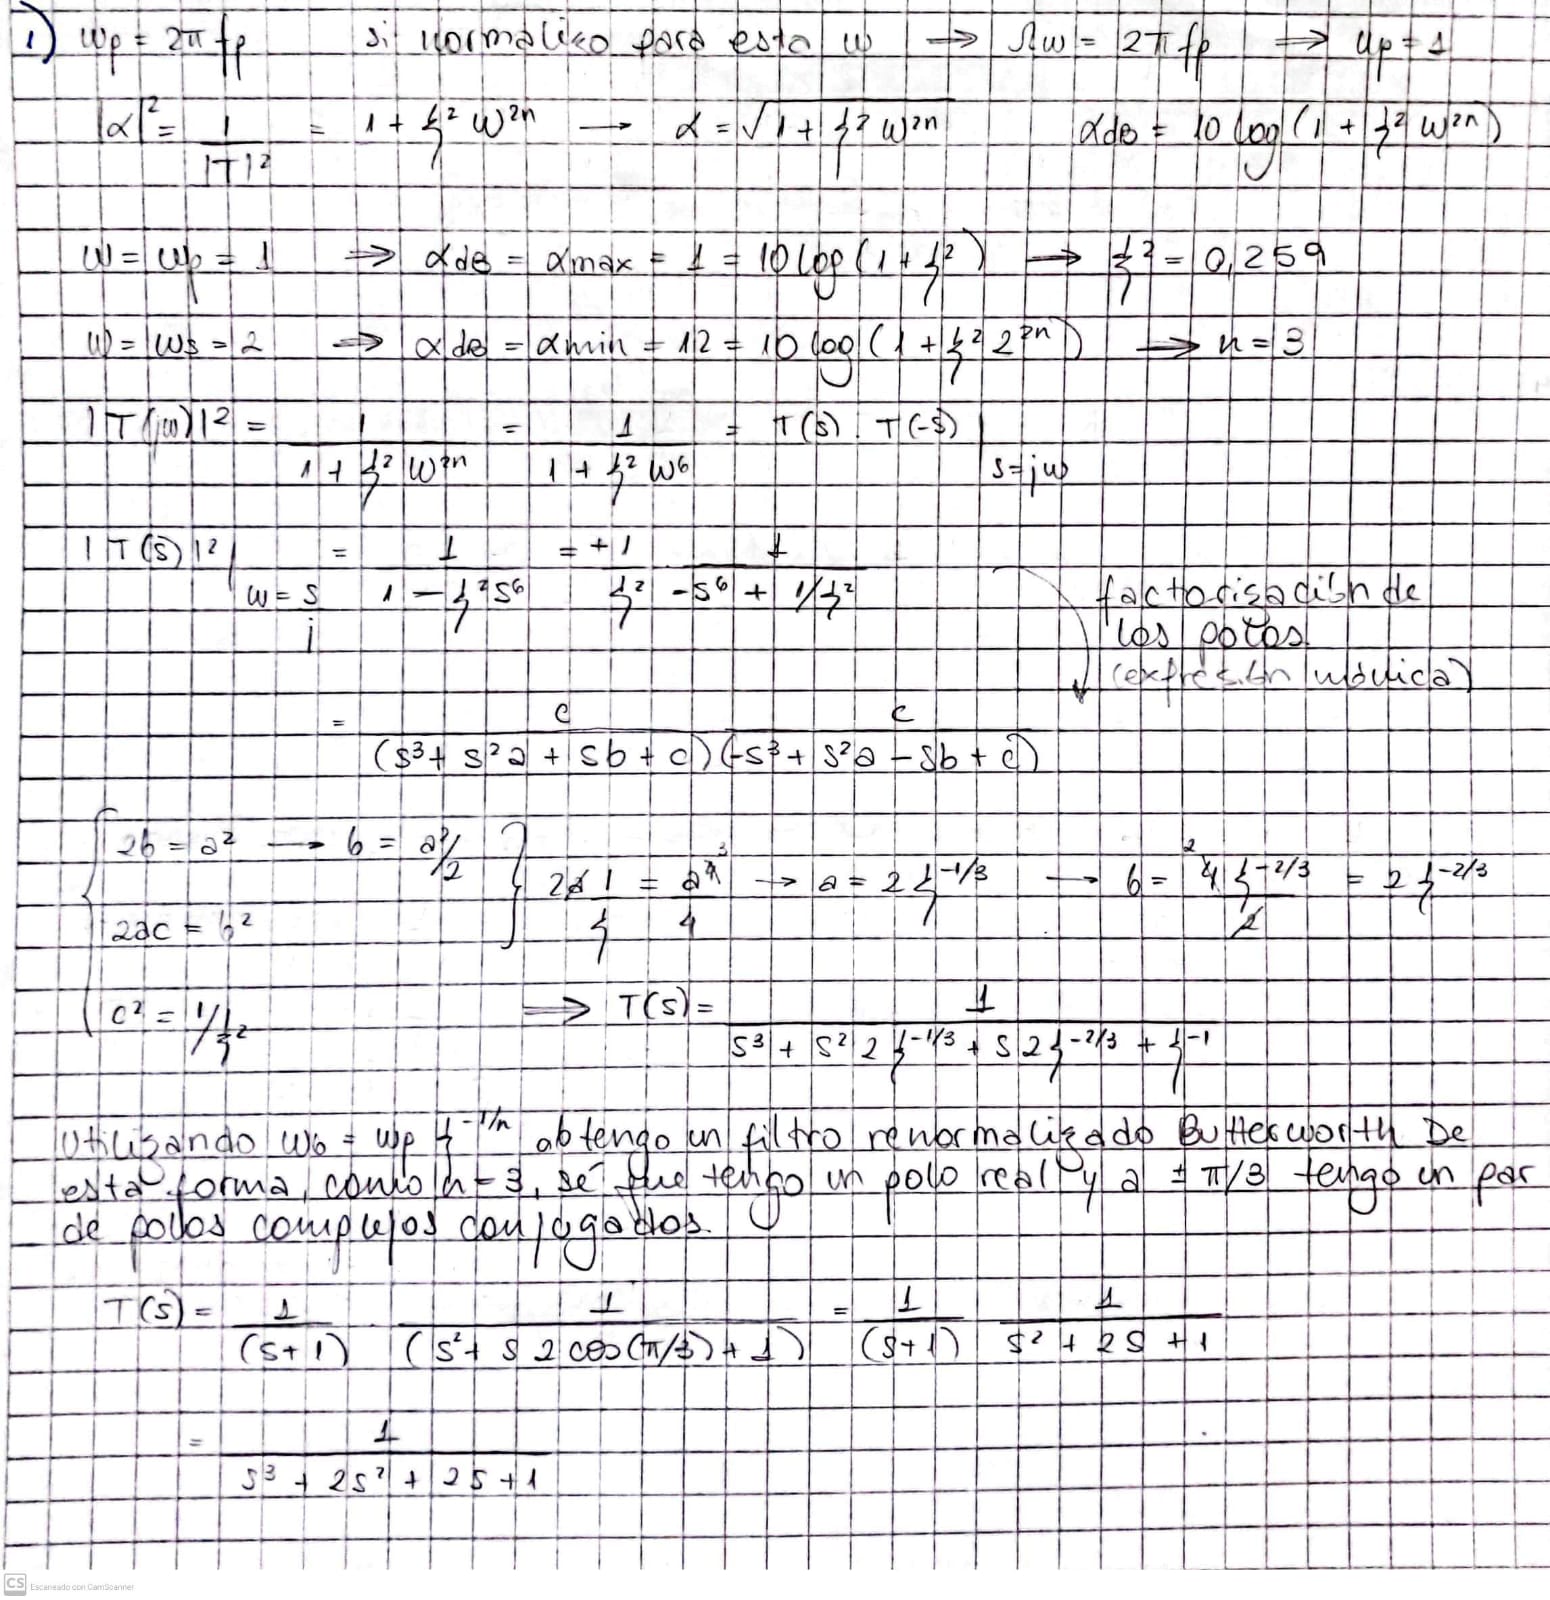 1) wp = 2π fp si normalizo para esta w → Ωw = 2π fp ⇒ wp = 1
|α|² = 1/|T|² = 1 + ξ² w²ⁿ → α = √(1 + ξ² w²ⁿ) αdB = 10 log(1 + ξ² w²ⁿ)
w = wp = 1 ⇒ αdB = αmax = 1 = 10 log(1 + ξ²) → ξ² = 0,259
w = ws = 2 ⇒ αdB = αmin = 12 = 10 log(1 + ξ² 2²ⁿ) → n = 3
|T(jw)|² = 1/(1 + ξ² w²ⁿ) = 1/(1 + ξ² w⁶) = T(s) . T(-s) | s=jw
|T(s)|² | w = s/j = 1/(1 - ξ² s⁶) = +1/ξ² 1/(-s⁶ + 1/ξ²)
factorización de
los polos
(expresión mónica)
= c/(s³ + s²a + sb + c) c/(-s³ + s²a - sb + c)
2b = a² → b = a²/2
2ac = b²
2a 1/ξ = a⁴/4 ³ → a = 2 ξ^-1/3 → b = 4 ξ^-2/3 / 2 ² = 2 ξ^-2/3
c² = 1/ξ² ⇒ T(s) = 1/(s³ + s² 2 ξ^-1/3 + s 2 ξ^-2/3 + ξ^-1)
Utilizando wb = wp ξ^-1/n obtengo un filtro renormalizado Butterworth De
esta forma, como n = 3, sé que tengo un polo real y a ± π/3 tengo un par
de polos complejos conjugados.
T(s) = 1/(s+1) 1/(s² + s 2 cos(π/3) + 1) = 1/(s+1) 1/(s² + 2s + 1)
= 1/(s³ + 2s² + 2s + 1)
CS Escaneado con CamScanner